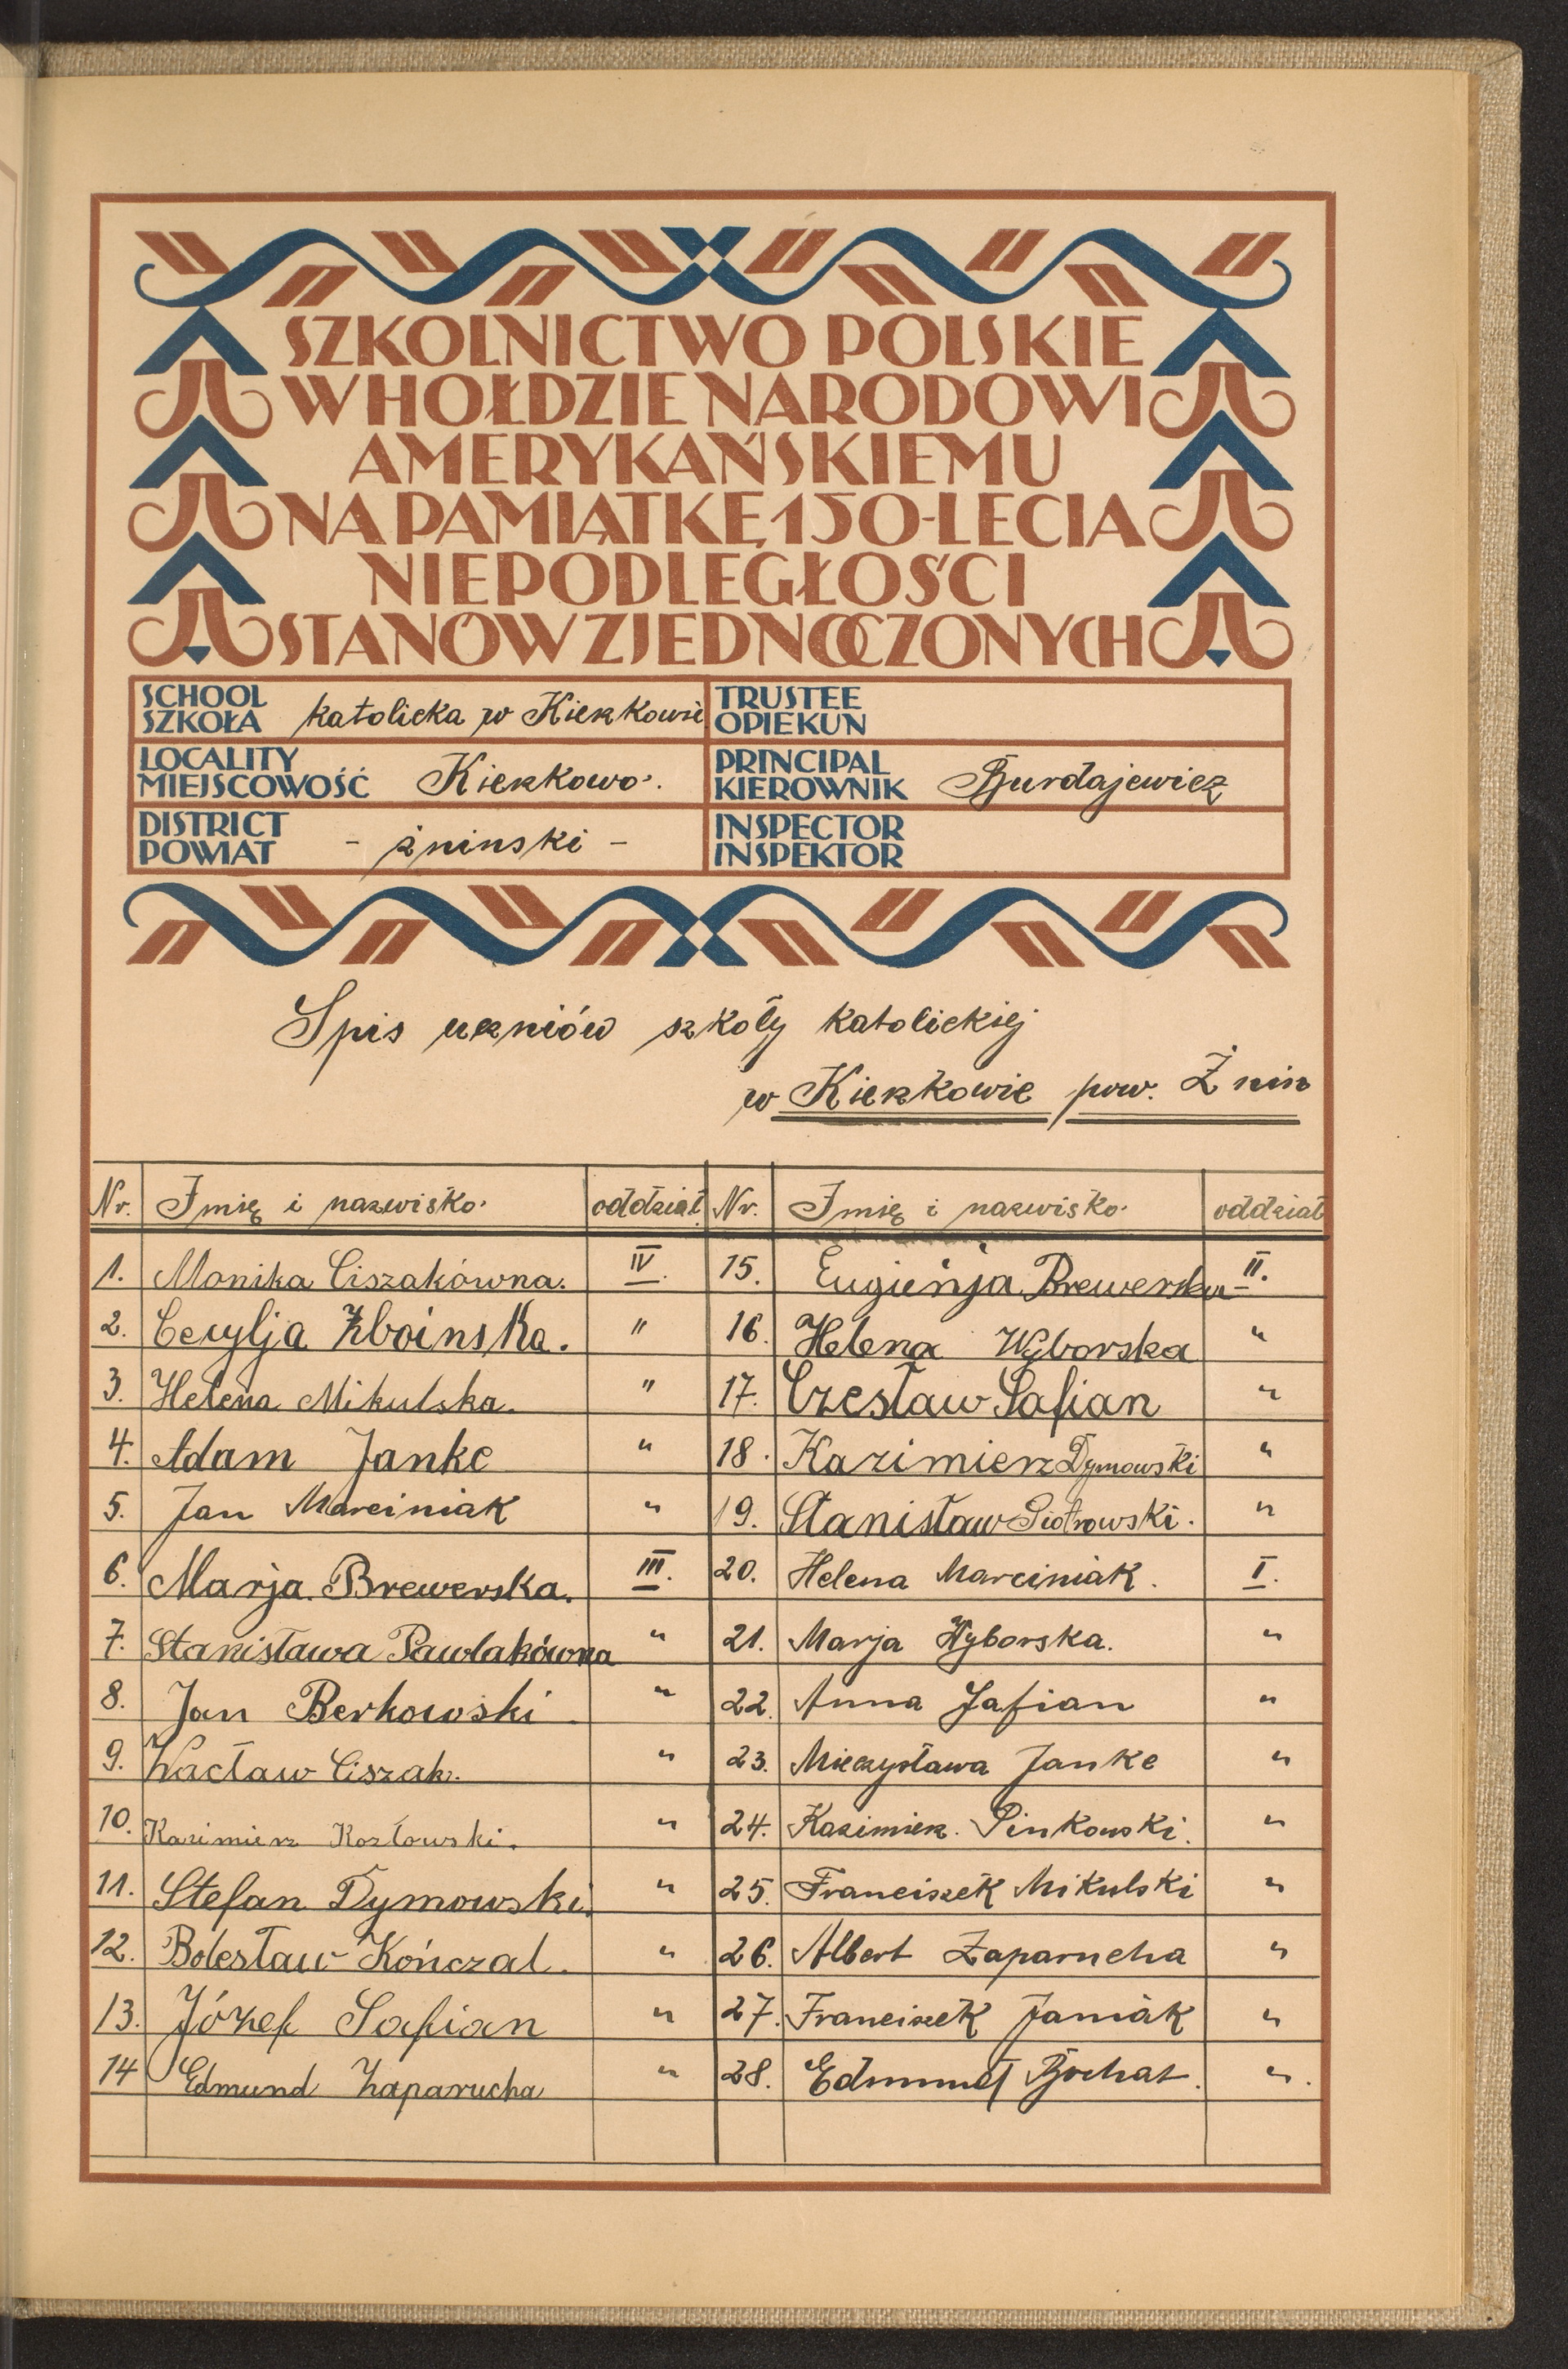 SZKOLNICTWO POLSKIE
W HOŁDZIE NARODOWI
AMERYKAŃSKIEMU
NA PAMIĄTKĘ 150-LECIA
NIEPODLEGŁOŚCI
STANÓW ZJEDNOCZONYCH
SCHOOL
SZKOŁA katolicka w Kierzkowie
TRUSTEE
OPIEKUN
LOCALITY
MIEJSCOWOŚĆ Kierzkowo.
PRINCIPAL
KIEROWNIK Burdajewicz
DISTRICT
POWIAT - żninski -
INSPECTOR
INSPEKTOR
Spis uczniów szkoły katolickiej
w Kierzkowie pow. Żnin
Nr. Imię i nazwisko. oddział Nr. Imię i nazwisko. oddział
1. Monika Ciszakówna. IV. 15. Eugienja Brewerska II.
2. Cecylja Zboinska. " 16. Helena Wyborska "
3. Helena Mikulska. " 17. Czesław Safian "
4. Adam Janke " 18. Kazimierz Dymowski "
5. Jan Marciniak " 19. Stanisław Piotrowski. "
6. Marja Brewerska. III. 20. Helena Marciniak. I.
7. Stanisława Pawlakówna " 21. Marja Wyborska. "
8. Jan Berkowski " 22. Anna Safian "
9. Wacław Ciszak. " 23. Mieczysława Janke "
10. Kazimierz Kozłowski. " 24. Kazimierz. Pinkowski. "
11. Stefan Dymowski. " 25. Franciszek Mikulski "
12. Bolesław Kończal. " 26. Albert Zaparucha "
13. Józef Safian " 27. Franciszek Janiak "
14 Edmund Zaparucha " 28. Edmund Bochat. ".